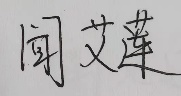 闻艾莲